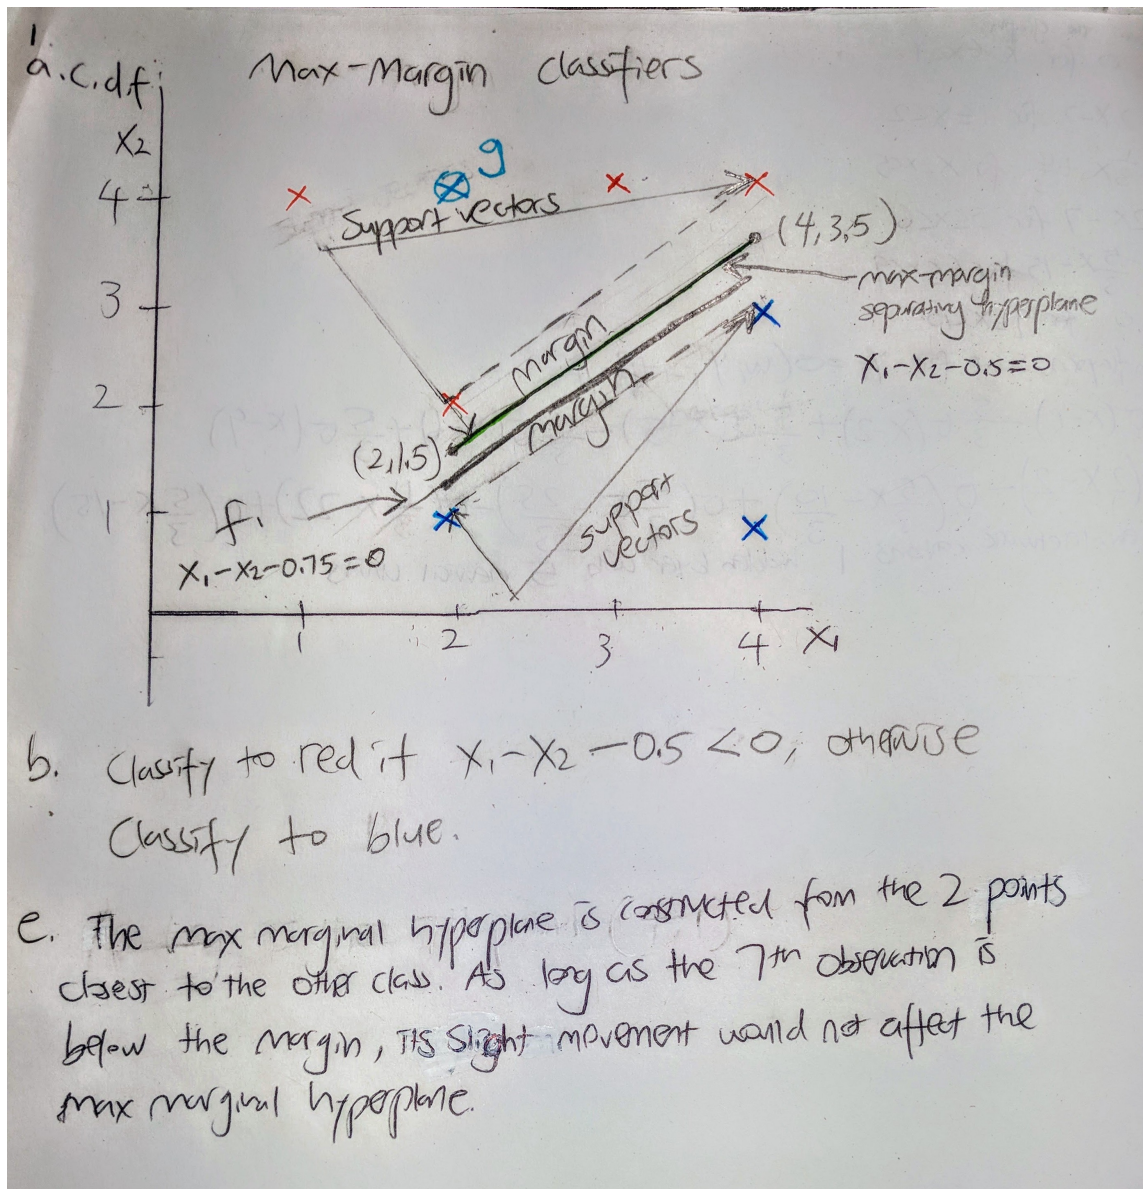 1
a.c.d.f. Max-Margin Classifiers
X2
g
4
Support vectors
(4,3,5)
3
max-margin
separating hyperplane
X1-X2-0.5=0
margin
2
margin
(2,1.5)
1
f.
support
vectors
X1-X2-0.75=0
1 2 3 4 X1
b. Classify to red if X1-X2-0.5<0, otherwise
Classify to blue.
e. The max marginal hyperplane is constructed from the 2 points
closest to the other class. As long as the 7th observation is
below the margin, its slight movement would not affect the
max marginal hyperplane.